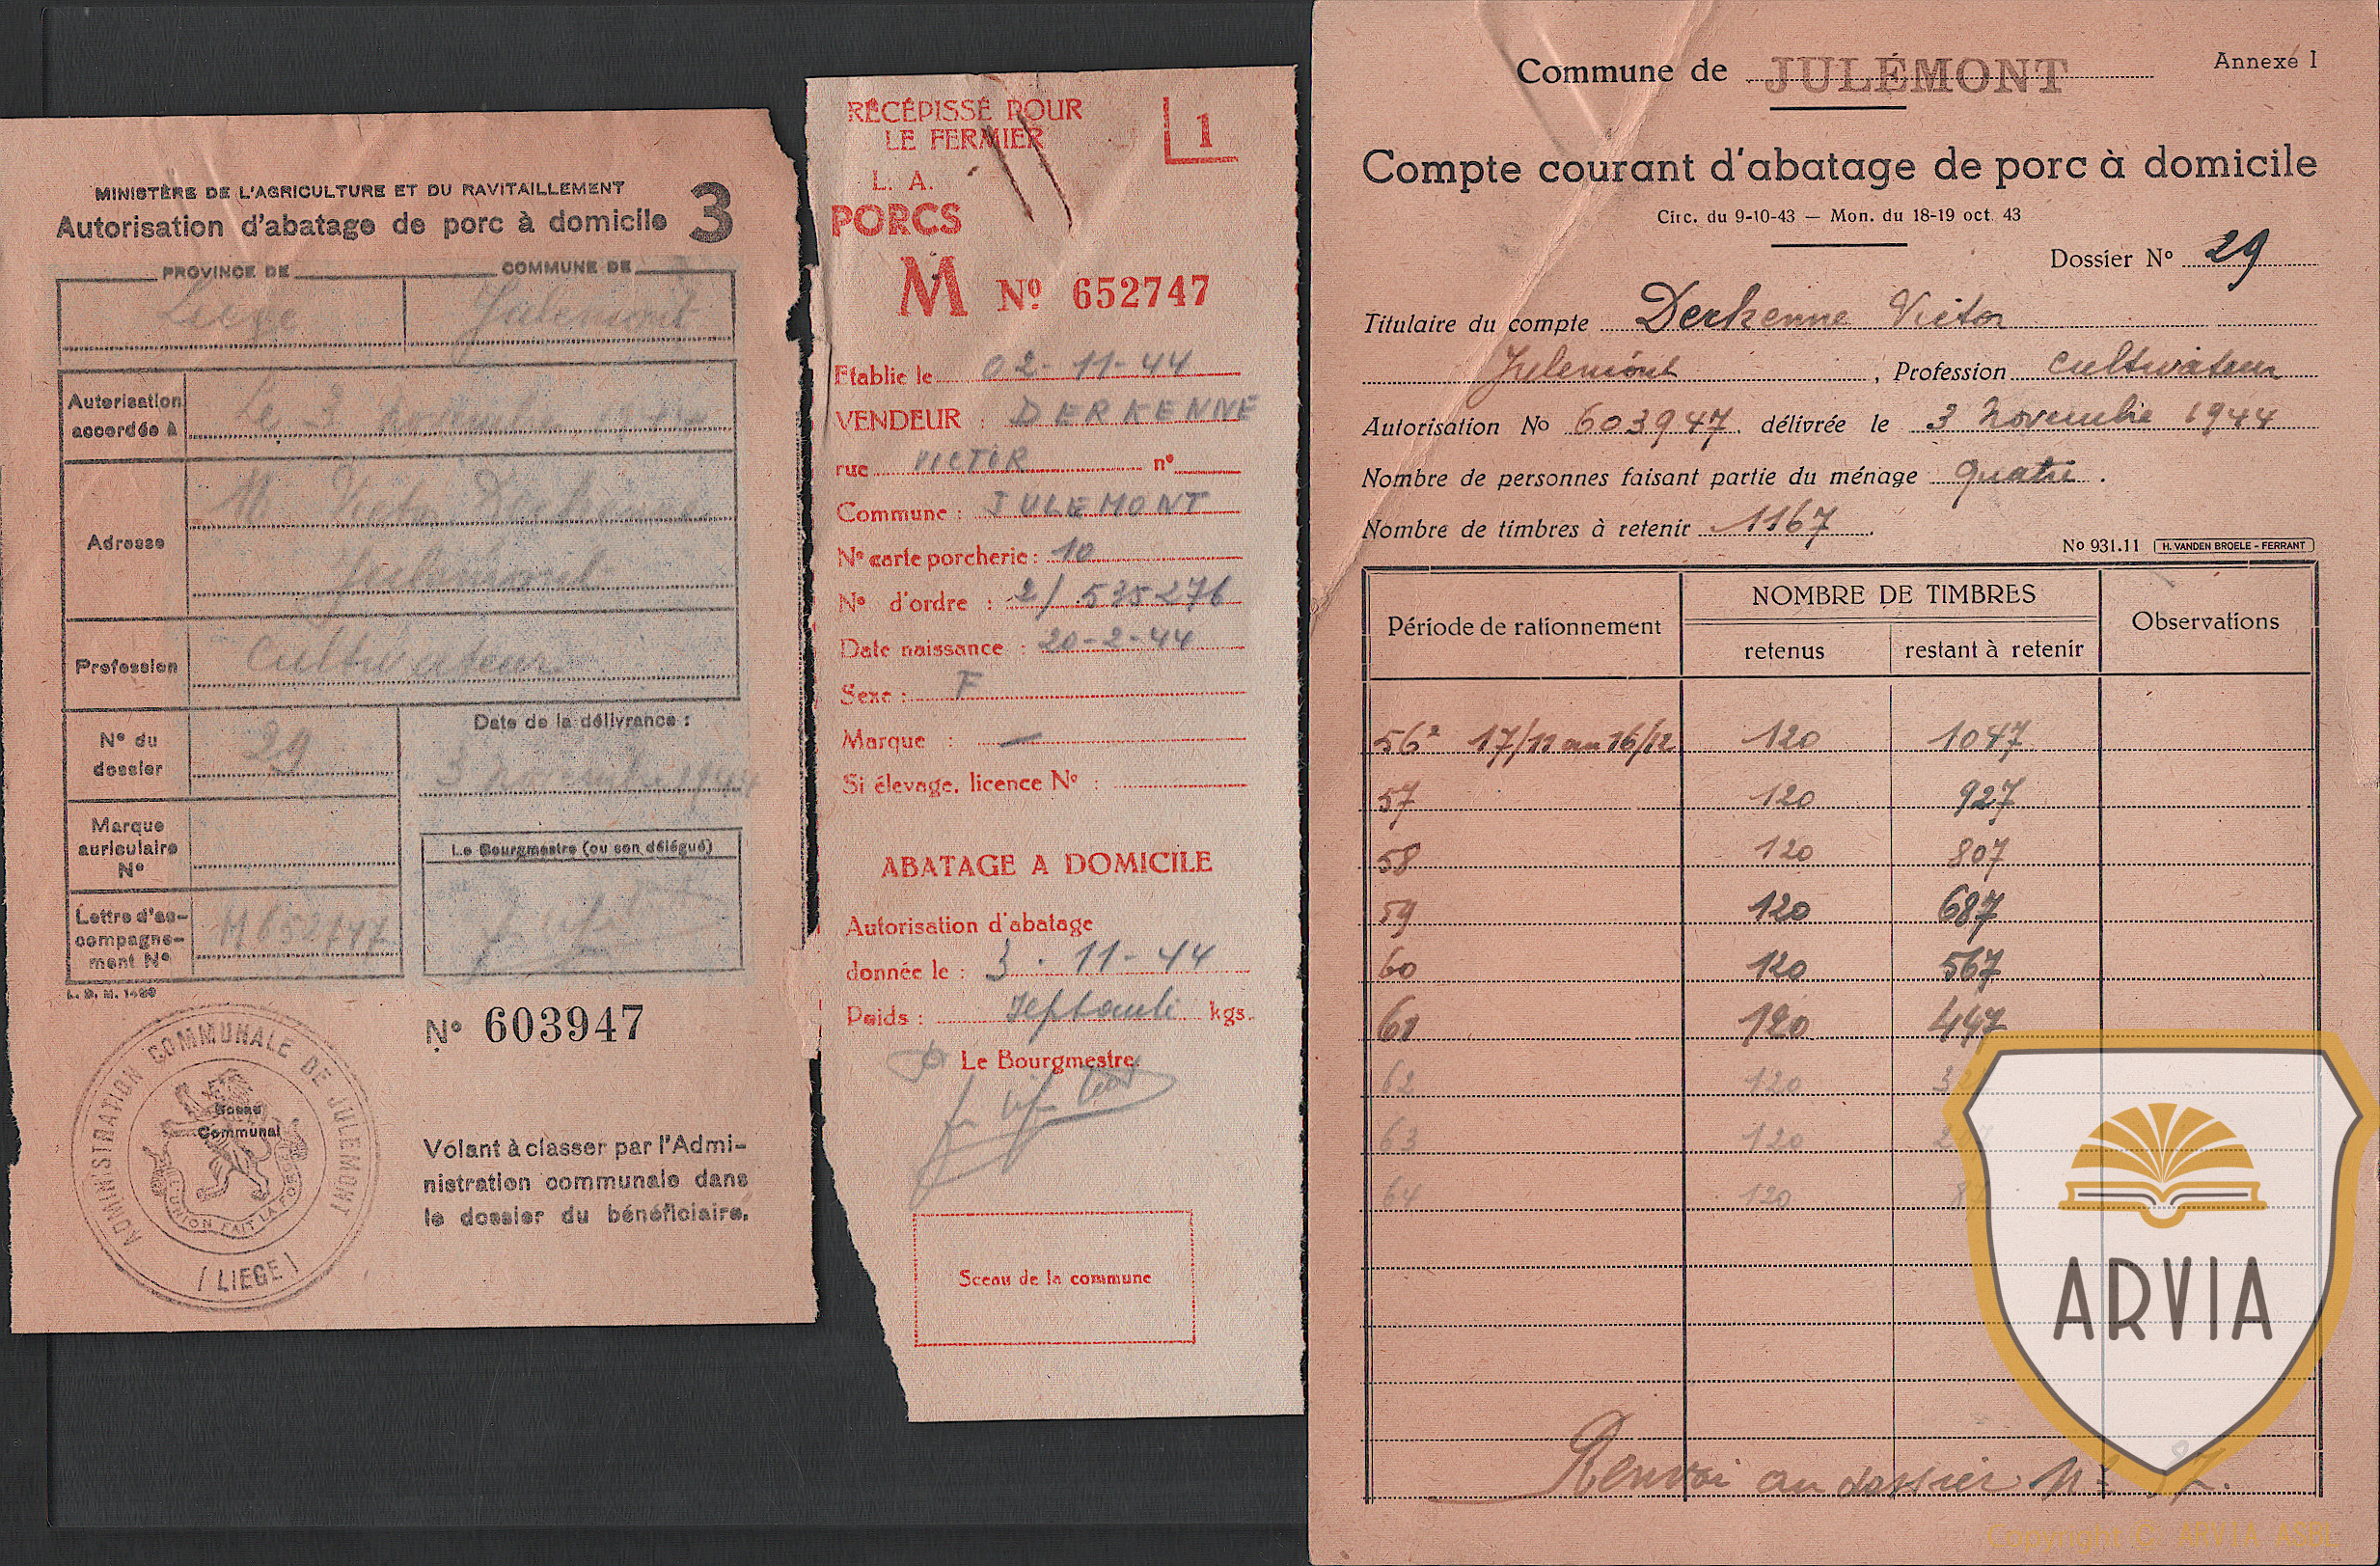 MINISTÈRE DE L'AGRICULTURE ET DU RAVITAILLEMENT
Autorisation d'abatage de porc à domicile 3
PROVINCE DE COMMUNE DE
Liège Julemont
Autorisation
accordée à
Le 3 novembre 1944
Adresse
M Victor Derkenne
Julemont
Profession
Cultivateur
N° du
dossier
29
Date de la délivrance :
3 novembre 1944
Marque
auriculaire
N°
Le Bourgmestre (ou son délégué)
Lettre d'ac-
compagne-
ment N°
M 652747
L. D. M. 1499
N° 603947
ADMINISTRATION COMMUNALE DE JULEMONT
(LIEGE)
L'UNION FAIT LA FORCE
Sceau
Communal
Volant à classer par l'Admi-
nistration communale dans
le dossier du bénéficiaire.
RÉCÉPISSÉ POUR
LE FERMIER
1
L. A.
PORCS
M Nº 652747
Etablie le 02-11-44
VENDEUR : DERKENNE
rue VICTOR n°
Commune : JULEMONT
N° carte porcherie : 10
N° d'ordre : 2/ 535276
Date naissance : 20-2-44
Sexe : F
Marque : —
Si élevage, licence N° :
ABATAGE A DOMICILE
Autorisation d'abatage
donnée le : 3 . 11-44
Poids : septante kgs.
Le Bourgmestre
Sceau de la commune
Commune de JULÉMONT Annexe I
Compte courant d'abatage de porc à domicile
Circ. du 9-10-43 — Mon. du 18-19 oct. 43
Dossier N° 29
Titulaire du compte Derkenne Victor
Julemont, Profession Cultivateur
Autorisation No 603947. délivrée le 3 novembre 1944
Nombre de personnes faisant partie du ménage quatre.
Nombre de timbres à retenir 1167.
No 931.11 H. VANDEN BROELE - FERRANT
Période de rationnement NOMBRE DE TIMBRES Observations
retenus restant à retenir
56² 17/11 au 16/12 120 1047
57 120 927
58 120 807
59 120 687
60 120 567
61 120 447
62 120
63 120
64 120
Renvoi au dossier N°
ARVIA
Copyright © ARVIA ASBL